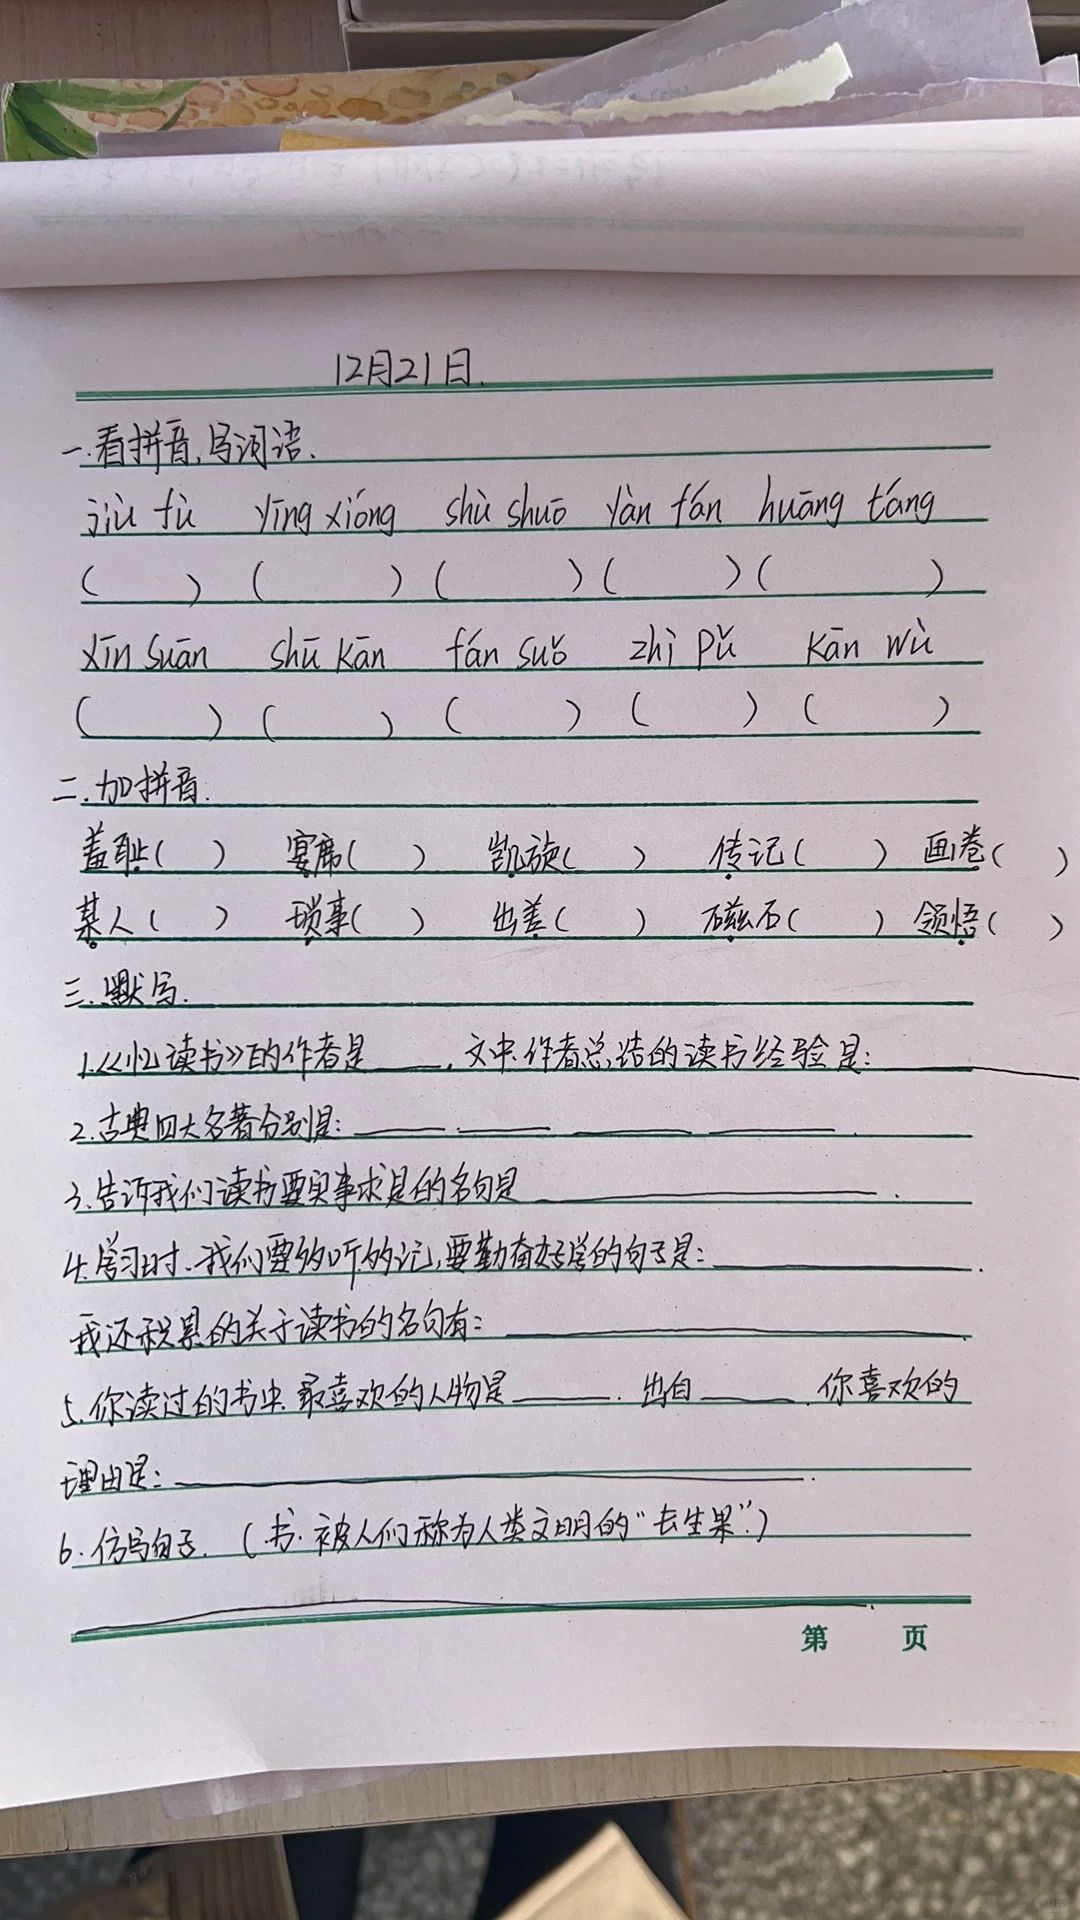 12月21日.
一.看拼音,写词语.
jiù fù yīng xióng shù shuō yàn fán huāng táng
( ) ( ) ( ) ( ) ( )
xīn suān shū kān fán suǒ zhì pǔ kān wù
( ) ( ) ( ) ( ) ( )
二.加拼音.
羞耻( ) 宴席( ) 凯旋( ) 传记( ) 画卷( )
某人( ) 琐事( ) 出差( ) 磁石( ) 领悟( )
三.默写.
1.《忆读书》的作者是____.文中.作者总结的读书经验是:____
2.古典四大名著分别是:____ ____ ____ ____.
3.告诉我们读书要实事求是的名句是____.
4.学习时.我们要多听多记,要勤奋好学的句子是:____.
我还积累的关于读书的名句有:____.
5.你读过的书中.最喜欢的人物是____.出自____.你喜欢的
理由是:____.
6.仿写句子.(书.被人们称为人类文明的“长生果”.)
____.
第 页